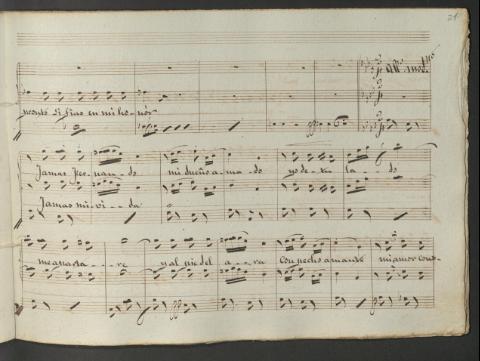 21
All.º mod.to
pronto si fias en mi honor
Jamas Fer-nan-do mi dueño a-ma-do yo de tu la-do
Jamas mi vi-da
me aparta-re y al pie del a-ra con pecho amante mi amor cons-